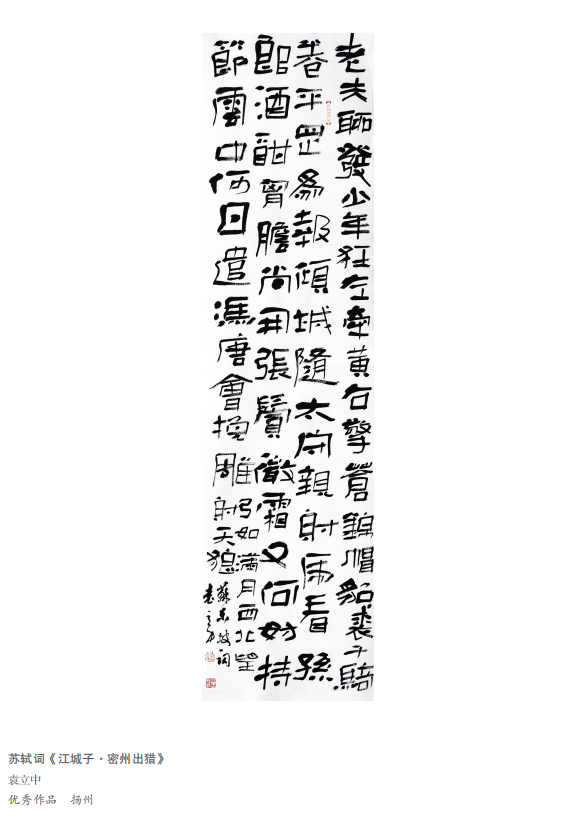 老夫聊發少年狂左牽黃右擎蒼錦帽貂裘千騎
卷平岡為報傾城隨太守親射虎看孫
郎酒酣胷膽尚開張鬢微霜又何妨持
節雲中何日遣馮唐會挽雕
弓如滿月西北望
射天狼
蘇東坡詞
袁立中
苏轼词《江城子·密州出猎》
袁立中
优秀作品 扬州